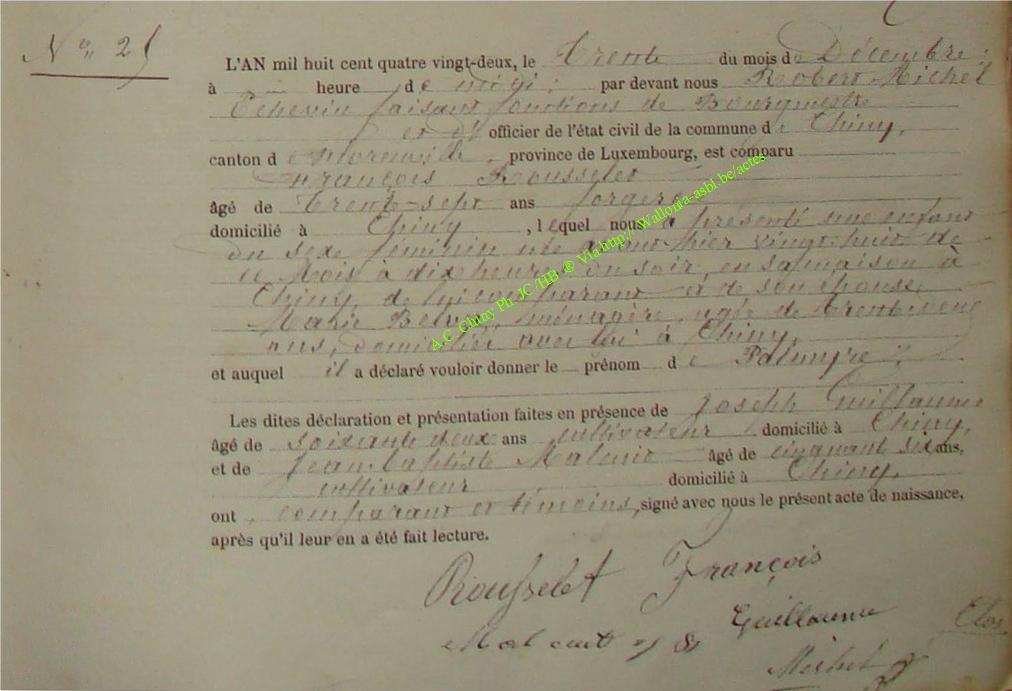 N° 25
L'AN mil huit cent quatre vingt-deux, le Trente du mois de Décembre
à heure de midi; par devant nous Robert Michel
Echevin faisant fonctions de Bourgmestre
et d' officier de l'état civil de la commune de Chiny,
canton de province de Luxembourg, est comparu
François Rousselet
âgé de Trente-sept ans forgeron
domicilié à Chiny, lequel nous a présenté une enfant
du sexe féminin née avant hier vingt-huit de
ce mois à dix heures du soir, en sa maison à
Chiny, de lui comparant et de son épouse
Marie ménagère, agée de Trente
ans, domiciliée avec lui à Chiny,
et auquel il a déclaré vouloir donner le prénom de
Les dites déclaration et présentation faites en présence de Joseph Guillaume
âgé de soixante deux ans cultivateur domicilié à Chiny,
et de Jean Baptiste âgé de cinquante six ans,
cultivateur domicilié à Chiny,
ont comparant et témoins, signé avec nous le présent acte de naissance,
après qu'il leur en a été fait lecture.
Rousselet François
Guillaume
Michel
A.C. Chiny Ph JC /HB ® Via http://Wallonia-asbl.be/actes